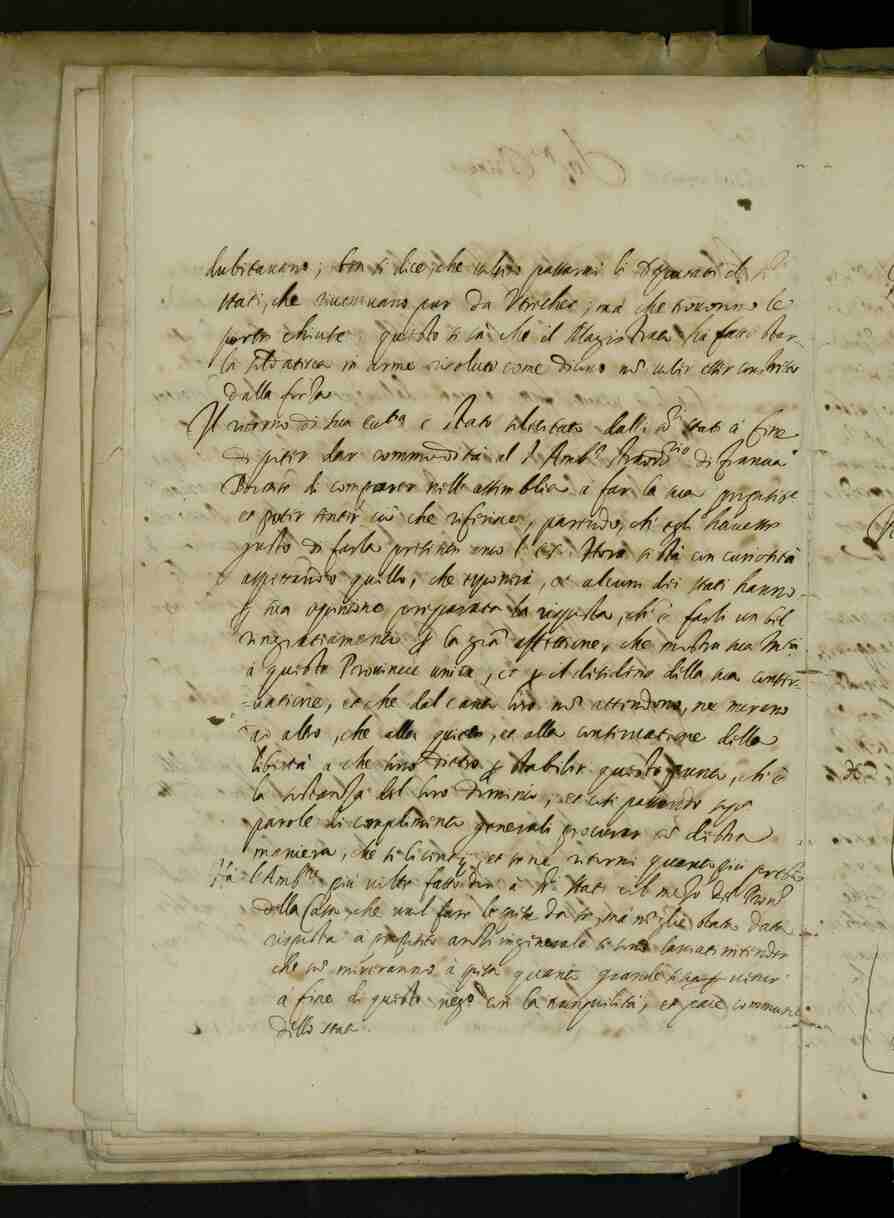 dubitavano; ben si dice, che volsero passarvi li Deputati delli
stati, che venivano pur da Utrichet; mà che trovorono le
porte chiuse. questo si sà che il Magistrato hà fatto star
la soldatesca in arme risoluto come dicono non voler esser constretto
dalla forza
Il ritorno di sua ecc.za è stato sollecitato dalli ss.ri stati à fine
di poter dar commodità al s.r Amb.r straord.rio di Francia
di comparer nell'assemblea à far la sua
et poter sentir ciò che riferirà, parendo, ch'egli havesse
gusto di farla presente anco l' Hora si stà con curiosità
aspettando quello, che esponerà, et alcuni dei stati hanno
per sua opinione preparata la risposta, ch'è farli un bel
ringratiamento per la già affettione, che mostra sua M.tà
à queste Provincie unite, et per il desiderio della sua conser-
vatione, et che dal canto loro non attendono, ne mirano
ad altro, che alla quiete, et alla continuatione della
libertà à che sono dietro per stabilir questo punto, ch'è
la sostanza del loro dominio; et così passando sopra
parole di complimento generali procurar con destra
maniera, che si licentij, et se ne ritorni quanto più presto
Hà l'Amb.re più volte fatto dir à ss.ri stati col mezo del
della che vuol far le mà non gl'è stata data
risposta à proposito anzi in generale si sono lasciati intender
che non miraranno à spesa quanto grande si sia per venir
à fine di questo neg.o con la tranquilità, et pace commune
dello stato.